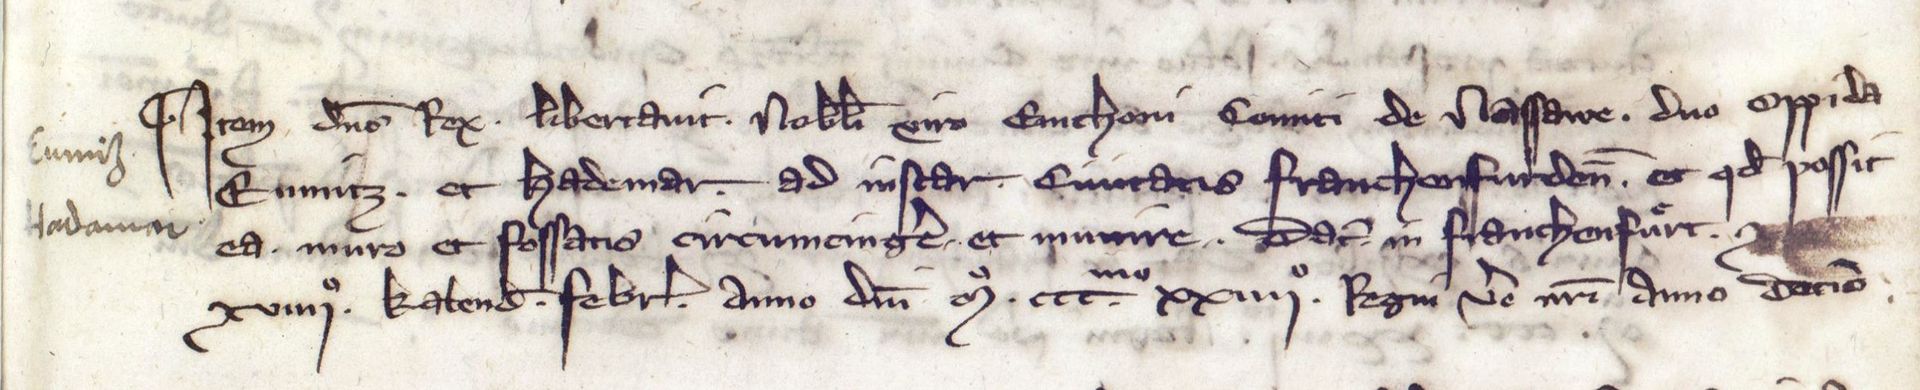 Item dns Rex. libertauit. Nobli viro Emichoni Comiti de Nassawe. duo oppida
Eumitz
Eumitz. et Hademar. ad instar Ciuitatis Franchenfurden. et qd possit
Hadamar
ea. muro et fossatis circumcingere. et munire. Dat in franchenfůrt.
xviiiiº. kalend. febr. Anno dni Mº. ccc.mo xxiiiiº. Regni v̄o nri Anno decio.